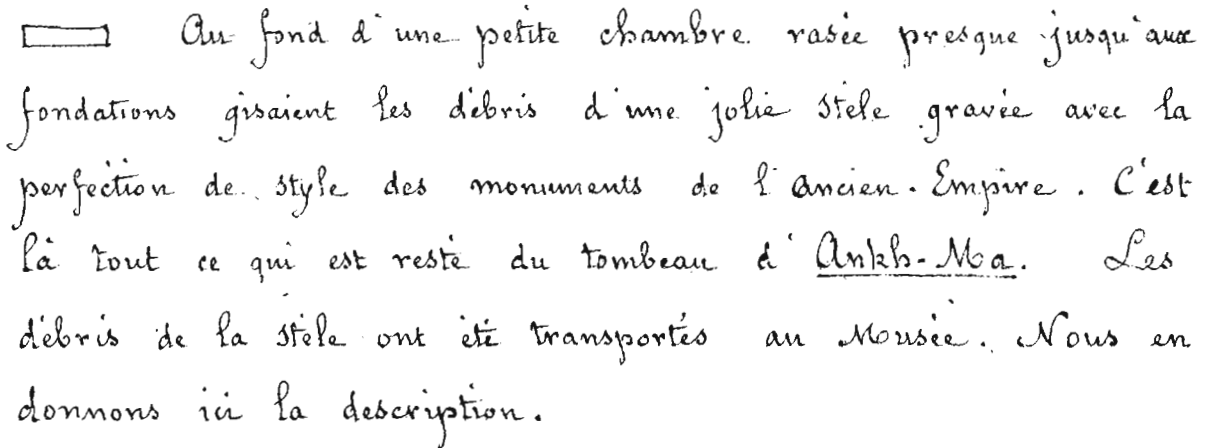 Au fond d'une petite chambre rasée presque jusqu'aux
fondations gisaient les débris d'une jolie stèle gravée avec la
perfection de style des monuments de l'ancien-Empire. C'est
là tout ce qui est resté du tombeau d'Ankh-Ma. Les
débris de la stèle ont été transportés au Musée. Nous en
donnons ici la description.